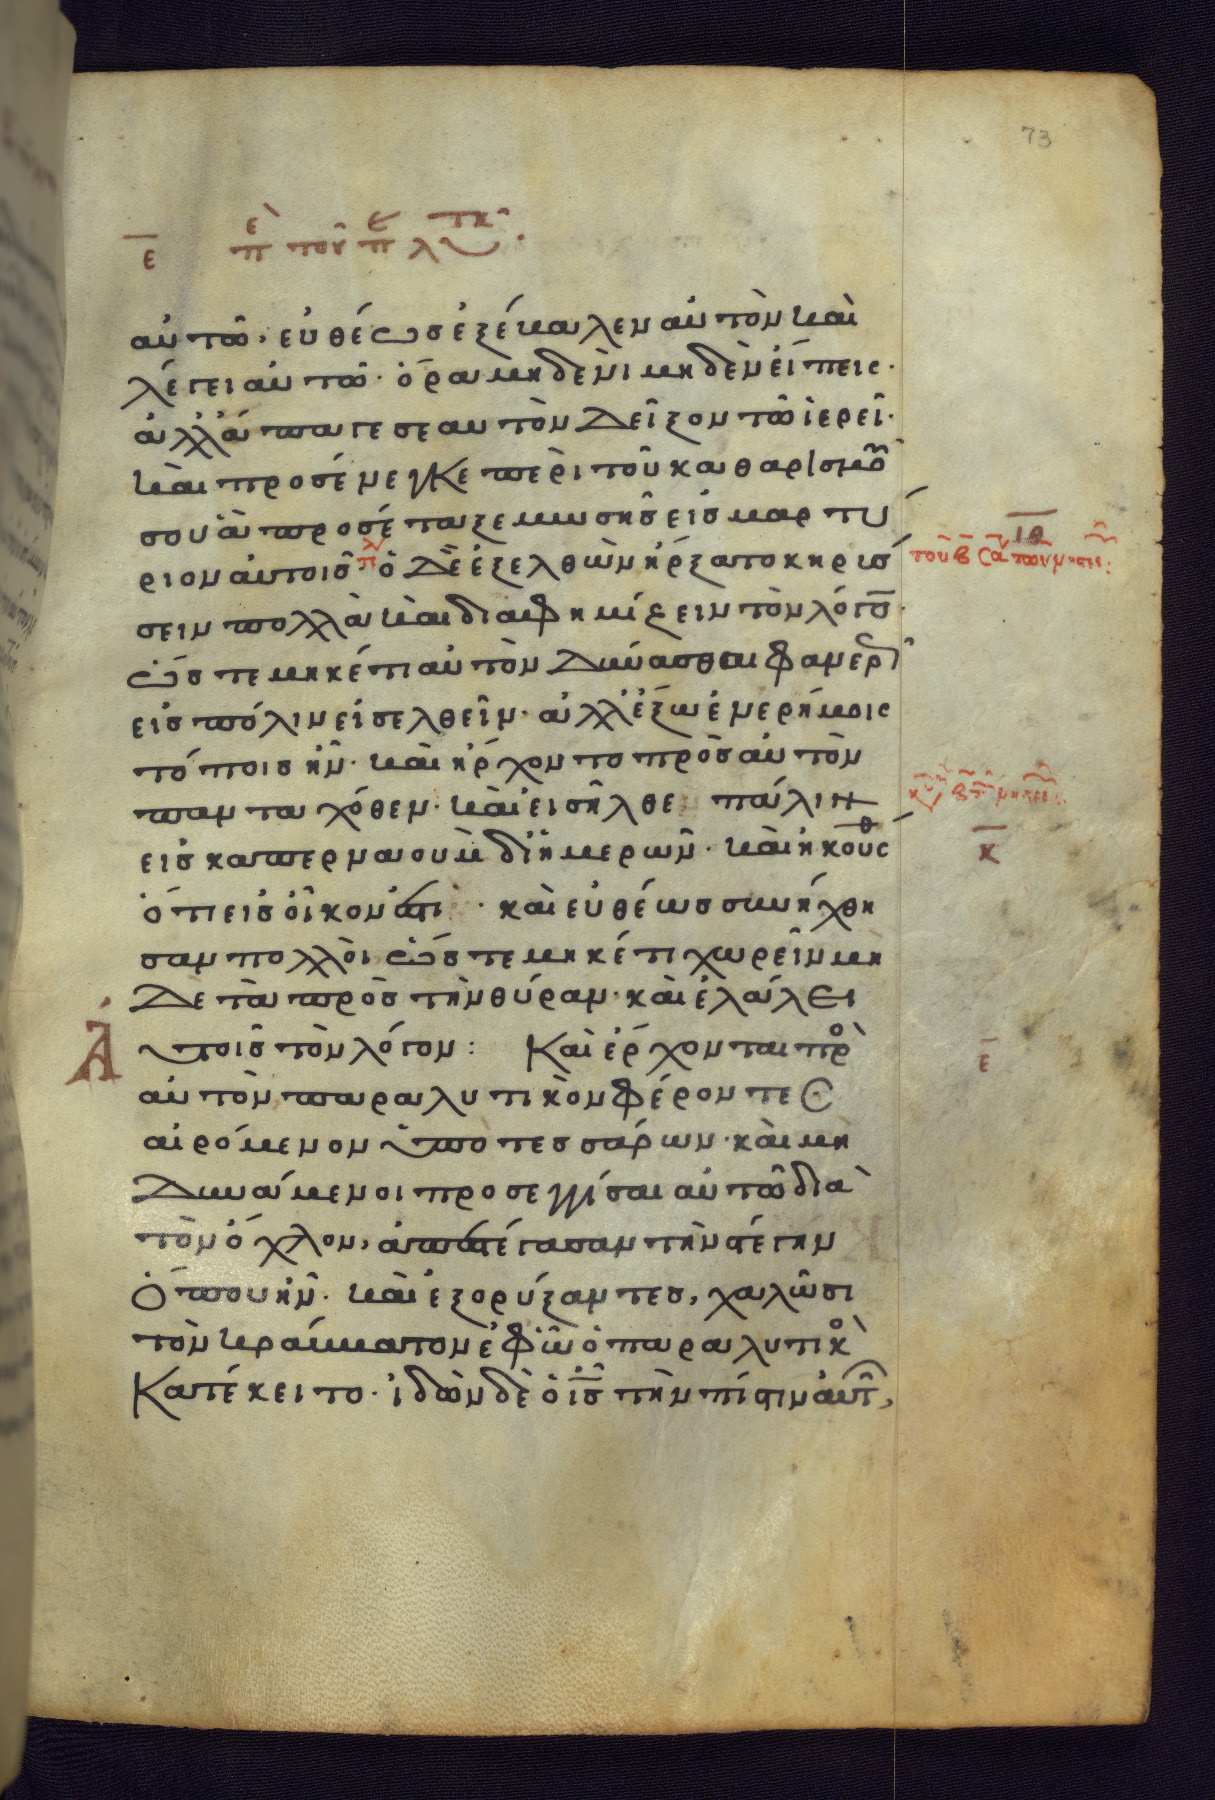 73
ε περὶ τοῦ παραλυτικοῦ.
αὐτῶ· εὐθέωσ ἐξέβαλεν αὐτὸν καὶ
λέγει αὐτῶ· ὅρα μηδενὶ μηδὲν εἴπεις·
ἀλλὰ ὕπαγε σεαυτὸν δεῖξον τῶ ἱερεῖ·
καὶ προσένεγκε περὶ τοῦ καθαρισμοῦ
σου ἃ προσέταξε μωσῆσ εἰσ μαρτύ
ριον αὐτοῖσ ὁ δὲ ἐξελθὼν ἤρξατο κηρύσ
σειν πολλὰ καὶ διαφημίζειν τὸν λόγον·
ὥστε μηκέτι αὐτὸν δύνασθαι φανερῶ
εἰσ πόλιν εἰσελθεῖν· ἀλλ' ἔξω ἐν ἐρήμοις
τόποισ ἦν· καὶ ἤρχοντο πρὸσ αὐτὸν
πανταχόθεν· καὶ εἰσῆλθε πάλιν
εἰσ καπερναοὺμ δι' ἡμερῶν· καὶ ἠκούσθ
ὅτι εἰσ οἶκον ἐστί· καὶ εὐθέωσ συνήχθη
σαν πολλοὶ ὥστε μηκέτι χωρεῖν μη
δὲ τὰ πρὸσ τὴν θύραν· καὶ ἐλάλει
αὐτοῖσ τὸν λόγον: Καὶ ἔρχονται πρὸ
αὐτὸν παραλυτικὸν φέροντες
αἰρόμενον ὑπὸ τεσσάρων· καὶ μὴ
δυνάμενοι προσεγγίσαι αὐτῶ διὰ
τὸν ὄχλον, ἀπεστέγασαν τὴν στέγην
ὅπου ἦν· καὶ ἐξορύξαντεσ, χαλῶσι
τὸν κράββατον ἐφ' ὧ ὁ παραλυτικὸ
κατέκειτο· ἰδὼν δὲ ὁ ισ τὴν πίστιν αὐτῶν,
ιθ
κ
ε